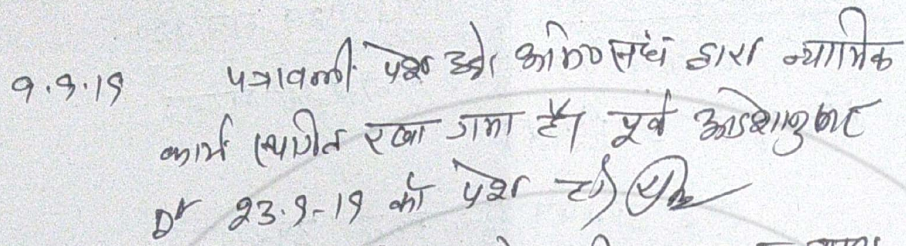 9.9.19 पत्रावली पेश हुई। अभि० संघ द्वारा न्यायिक
कार्य स्थगित रखा गया है। पूर्व आदेशानुसार
23.9-19 को पेश हो।